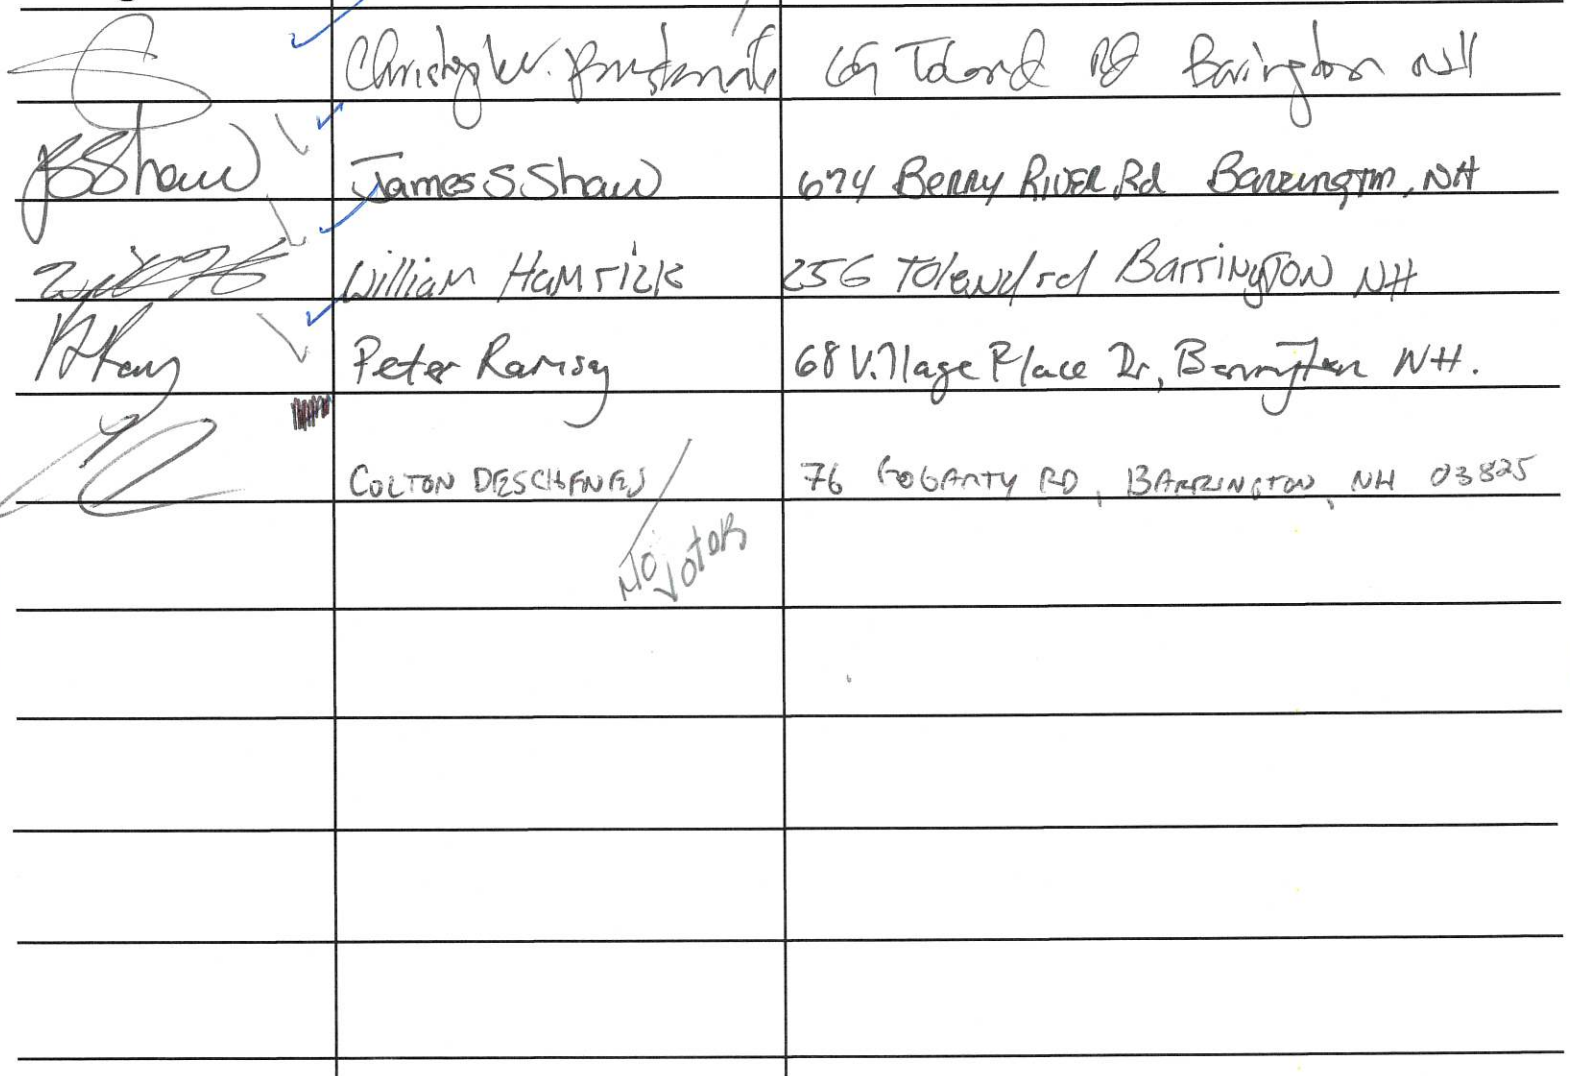 Rd Barington NH
JSShaw James S. Shaw 674 BERRY RIVER Rd Barrington, NH
William HAMrick 256 Tolend rd BArrINgTON NH
Peter Ramsay 68 Village Place Dr, Barrington NH.
COLTON DESCHENES 76 FOGARTY RD, BARRINGTON, NH 03825
NO
VOTER